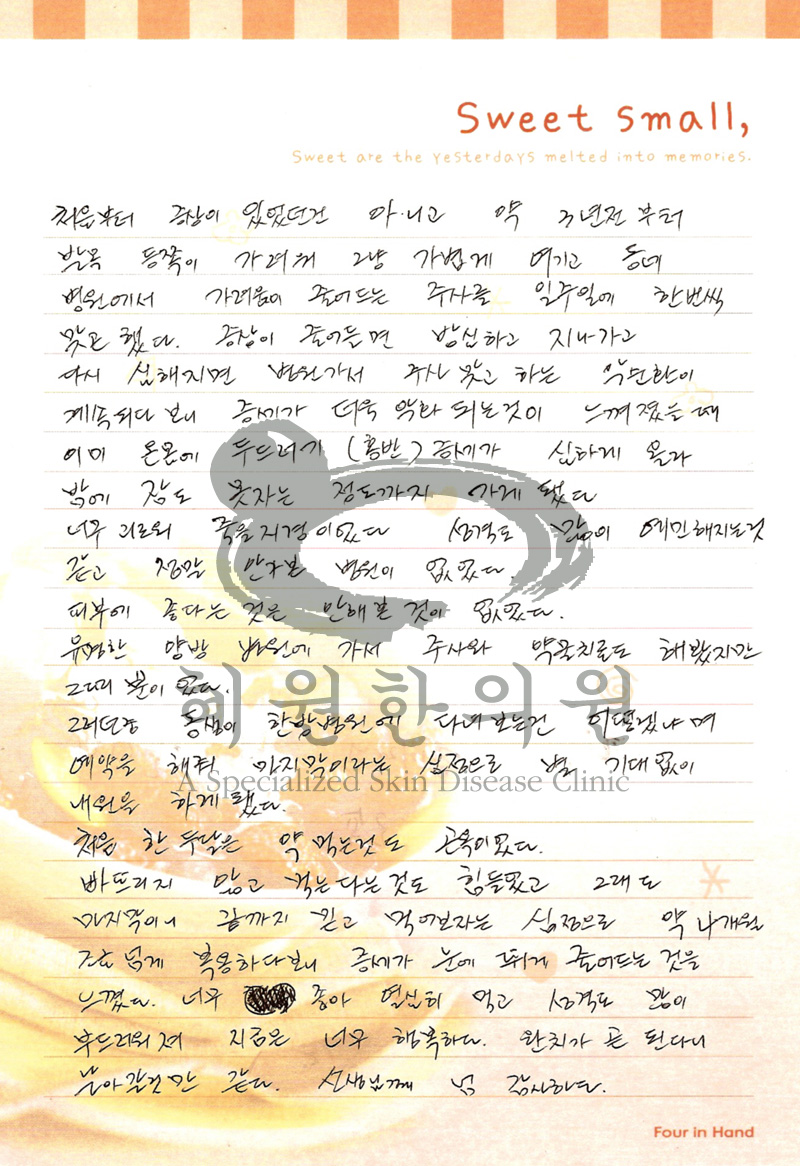 Sweet small,
Sweet are the yesterdays melted into memories.
처음부터 증상이 있었던건 아니고 약 3년전부터
발목 등쪽이 가려워 그냥 가볍게 여기고 동네
병원에서 가려움이 줄어드는 주사를 일주일에 한번씩
맞곤 했다. 증상이 줄어들면 방심하고 지나가고
다시 심해지면 병원가서 주사 맞고 하는 악순환이
계속되다 보니 증세가 더욱 악화 되는것이 느껴졌을 때
이미 온몸에 두드러기 (홍반) 증세가 심하게 올라
밤에 잠도 못자는 정도까지 가게 됐다
너무 괴로워 죽을지경이었다 성격도 많이 예민해지는것
같고 정말 안가본 병원이 없었다.
피부에 좋다는 것은 안해본 것이 없었다.
유명한 양방 병원에 가서 주사와 약물치료도 해봤지만
그때 뿐이었다.
그러던중 동생이 한방병원에 다녀보는건 어떻겠냐며
예약을 해줘 마지막이라는 심정으로 별 기대없이
내원을 하게됐다.
처음 한 두달은 약 먹는것도 곤욕이었다.
빠뜨리지 않고 먹는다는것도 힘들었고 그래도
마지막이니 끝까지 믿고 먹어보자는 심정으로 약 4개월
조금 넘게 복용하다보니 증세가 눈에 띄게 줄어드는 것을
느꼈다. 너무 좋아 열심히 먹고 성격도 많이
부드러워져 지금은 너무 행복하다. 완치가 곧 된다니
날아갈것만 같다. 선생님께 넘 감사하다.
혜원한의원
A Specialized Skin Disease Clinic
Four in Hand